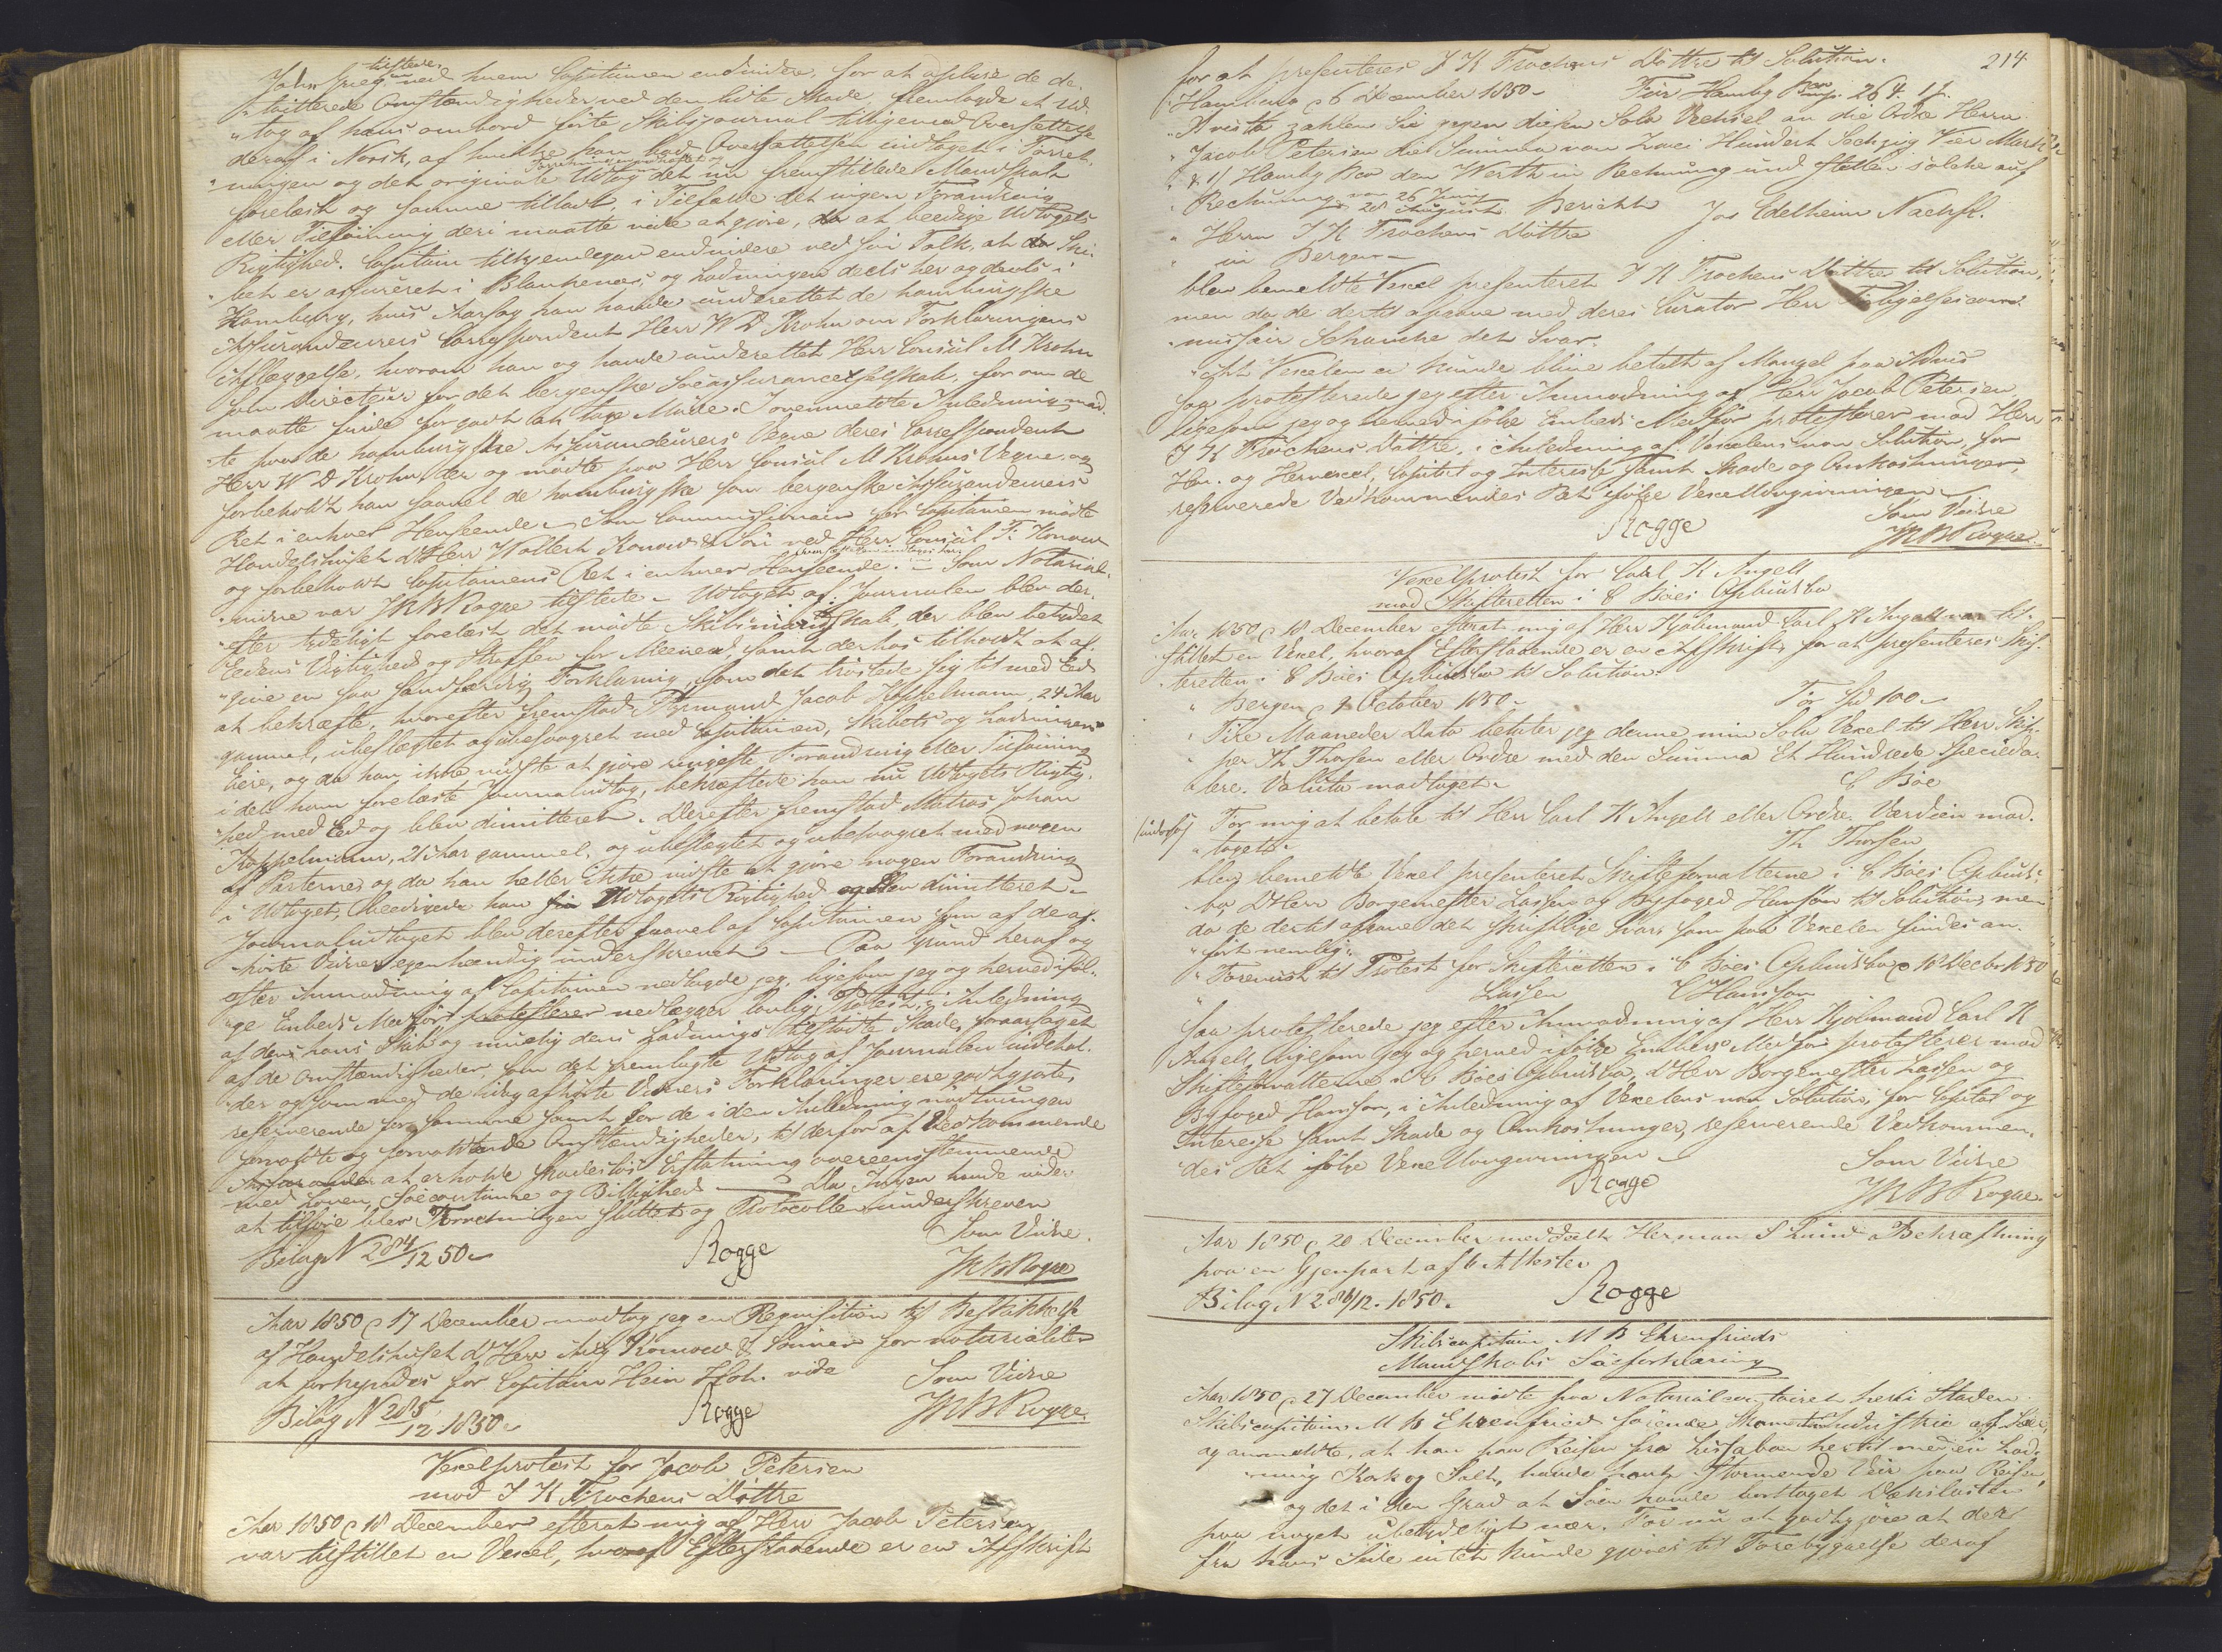 John Grieg tilstede, ved hvem Capitainen endvidere, for at oplyse de de-
"taillerede Omstændigheder ved den lidte Skade, fremlagde et Ud-
"tog af hans ombord førte Skibsjournal tilligemed Oversættelse
deraf i Norsk, af hvilke han bad Oversættelsen indtaget i Forret-
"ningen og det originale Udtog det nu fremstillede Mandskab
forelæst og samme tilladt, i Tilfælde det ingen Forandring
eller Tilføining deri maatte vide at gjøre, at beedige Udtogets
Rigtighed. Capitain tilkjendegav endvidere ved sin Tolk, at Ski-
"bet er assureret i Blankenes, og Ladningen deels her og deels i
Hamburg, hvis Aarsag han havde underrettet de hamburgske
Assurandeurers Correspondent Herr W D Krohn om Forklaringens
Aflæggelse, hvorom han og havde underrettet Herr Consul M Krohn
som Directeur for det bergenske Søeassuranceselskab, for om de
maatte finde for godt at tage Møde. I ovenmeldte Anledning mød-
"te paa de hamburgske Assurandeurers Vegne deres Correspondent
Herr W D Krohn, der og mødte paa Herr Consul M Krohns Vegne og
forbeholdt han saavel de hamburgske som bergenske Assurandeurers
Ret i enhver Henseende. – Som Commissionair for Capitainen mødte
Handelshuset DHerr Wollert Konow & Søn ved Herr Consul F: Konow
og forbeholdt Capitainens Ret i enhver Henseende. – Som Notarial-
"vidne var JRB Rogge tilstede – Udtoget af Journalen blev der-
"efter tydeligt forelæst det mødte Skibsmandskab, der blev betydet
Eedens Vigtighed og Straffen for Meeneed, samt derhos tilholdt at af-
"give en saa sandfærdig Forklaring, som det trøstede sig til med Eed
at bekræfte, hvorefter fremstod Styrmand Jacob Koppelmann, 24 Aar
gammel, ubeslægtet og ubesvogret med Capitainen, Skibets og Ladningens
Eiere, og da han ikke vidste at gjøre ringeste Forandring eller Tilføining
i det ham forelæste Journaludtog, bekræftede han nu Udtogets Rigtig-
"hed med Eed og blev dimitteret. Derefter fremstod Matros Johan
Koppelmann, 21 Aar gammel, og ubeslægtet og ubesvogret med nogen
af Parterne, og da han heller ikke vidste at gjøre nogen Forandring
i Udtoget, beedigede han Udtogets Rigtighed og blev dimitteret –
Journaludtoget blev derefter saavel af Capitainen som af de af-
"hørte Vidner egenhændig underskrevet – Paa Grund heraf og
efter Anmodning af Capitainen nedlagde jeg, ligesom jeg og herved iføl-
"ge Embeds Medfør protesterer nedlægger lovlig Protest, i Anledning
af dens hans Skib og muelig dens Ladnings tilstødte Skade, foraarsaget
af de Omstændigheder, som det fremlagte Udtog af Journalen indehol-
"der og som med de idag afhørte Vidners Forklaringer ere godtgjorte,
reserverende for samme samt for de i den Anledning nødtvungen
forvoldte og forvoldende Omstændigheder, til derfor af Vedkommende
Assurandeur at erholde skadesløs Erstatning overeensstemmende
med Loven, Søecoutume og Billighed – Da Ingen havde videre
at tilføie blev Forretningen sluttet og Protocollen underskreven
Bilag N 284/12 50 – Rogge Som Vidne
JRB Rogge
Aar 1850 d 17 December modtog jeg en Requisition til Beskikkelse
af Handelshuset DHerr Aug Konow & Sønner for notarialiter
at forkyndes for Capitain Hein Holst. vide
Bilag N 285/12 1850 – Rogge Som Vidne
JRB Rogge
Vexelprotest for Jacob Petersen
mod J K Trochens Døttre
Aar 1850 d 18 December efterat mig af Herr Jacob Petersen
var tilstillet en Vexel, hvoraf Efterstaaende er en Afskrift
214
for at præsenteres J K Trochens Døttre til Solution.
Hamburg d 6 December 1850 – Für Hamby 264. 1 ß.
"A vista zahlen Sie gegen diesen Sola Wechsel an die Ordre Herrn
"Jacob Petersen die Summa von Zwei Hundert Sechzig Vier Mark
& 1ß Hamby Bco den Werth in Rechnung und stellen solche auf
"Rechnung von 26 Juny 28 August Bericht Jos Edelheim Nachfl.
" Herrn J K Trochens Døttre
" in Bergen –
blev bemeldte Vexel præsenteret J K Trochens Døttre til Solution,
men da de dertil afgave med deres Curator Herr
Schancke det Svar:
"at Vexelen ei kunde blive betalt af Mangel paa Advis
saa protesterede jeg efter Anmodning af Herr Jacob Petersen
ligesom jeg og herved ifølge Embeds Medfør protesterer mod Herr
J K Trochens Døttre, i Anledning af Vexelens non Solution, for
Hen- og Herrexel, Capital og Interesse samt Skade og Omkostninger,
reserverende Vedkommendes Ret ifølge Vexellovgivningen –
Rogge Som Vidne
JRB Rogge
Vexelprotest for Carl K Angell
mod Skifteretten i C Böes Opbudsbo
Aar 1850 d 18 December efterat mig af Herr Kjøbmand Carl K Angell var til-
"stillet en Vexel, hvoraf Efterstaaende er en Afskrift, for at præsenteres Skif-
"teretten i C Böes Opbudsbo til Solution.
" Bergen d 9 October 1850 – For Spd 100 –
" Tvke Maaneder Dato betaler jeg denne min Sola Vexel til Herr Skip-
" per Th Thorsen eller Ordre med den Summa Et Hundrede Specieda-
"lere. Valuta modtaget –
C Böe
(indorso) For mig at betale til Herr Carl K Angell eller Ordre. Værdien mod-
"taget –
Th Thorsen
blev bemeldte Vexel præsenteret Skifteforvalterne i C Böes Opbuds-
"bo, DHerr Borgemester Lassen og Byfoged Hanson til Solution, men
da de dertil afgave det skriftlige Svar som paa Vexelen findes an-
"ført nemlig:
" Foreviist til Protest for Skifteretten i C Böes Opbudsbo d 18 Decbr 1850
Lassen C Hansson
saa protesterede jeg efter Anmodning af Herr Kjøbmand Carl K
Angell ligesom jeg og herved ifølge Embeds Medfør protesterer mod
Skifteforvalterne i C Böes Opbudsbo, DHerr Borgemester Lassen og
Byfoged Hansson, i Anledning af Vexelens non Solution, for Capital og
Interesse samt Skade og Omkostninger, reserverende Vedkommen-
"des Ret ifølge Vexellovgivningen –
Rogge Som Vidne
JRB Rogge
Aar 1850 d 20 December meddeelt Herman S Lund Bekræftning
paa en Gjenpart af 6 Attester
Bilag N 286/12. 1850. Rogge
Skibscapitain M B Ehrenfrieds
Mandskabs Søeforklaring
Aar 1850 d 27 December mødte paa Notarialcontoiret her i Staden
Skibscapitain M B Ehrenfried førende Industrie af
og anmeldte, at han paa Reisen fra Lissabon hertil med en Lad-
"ning Kork og Salt, havde havt stormende Veir paa Reisen,
og det i den Grad at Søen havde borttaget Dækslasten
paa noget ubetydeligt nær. For nu at godtgjøre at der
fra hans Side intet kunde gjøres til Forebyggelse deraf